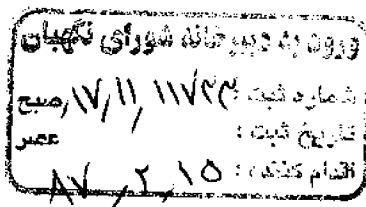 ورود به دبیرخانه شورای نگهبان
شماره ثبت : صبح
تاریخ ثبت : عصر
اقدام کننده : ۸۷/۲/۱۵